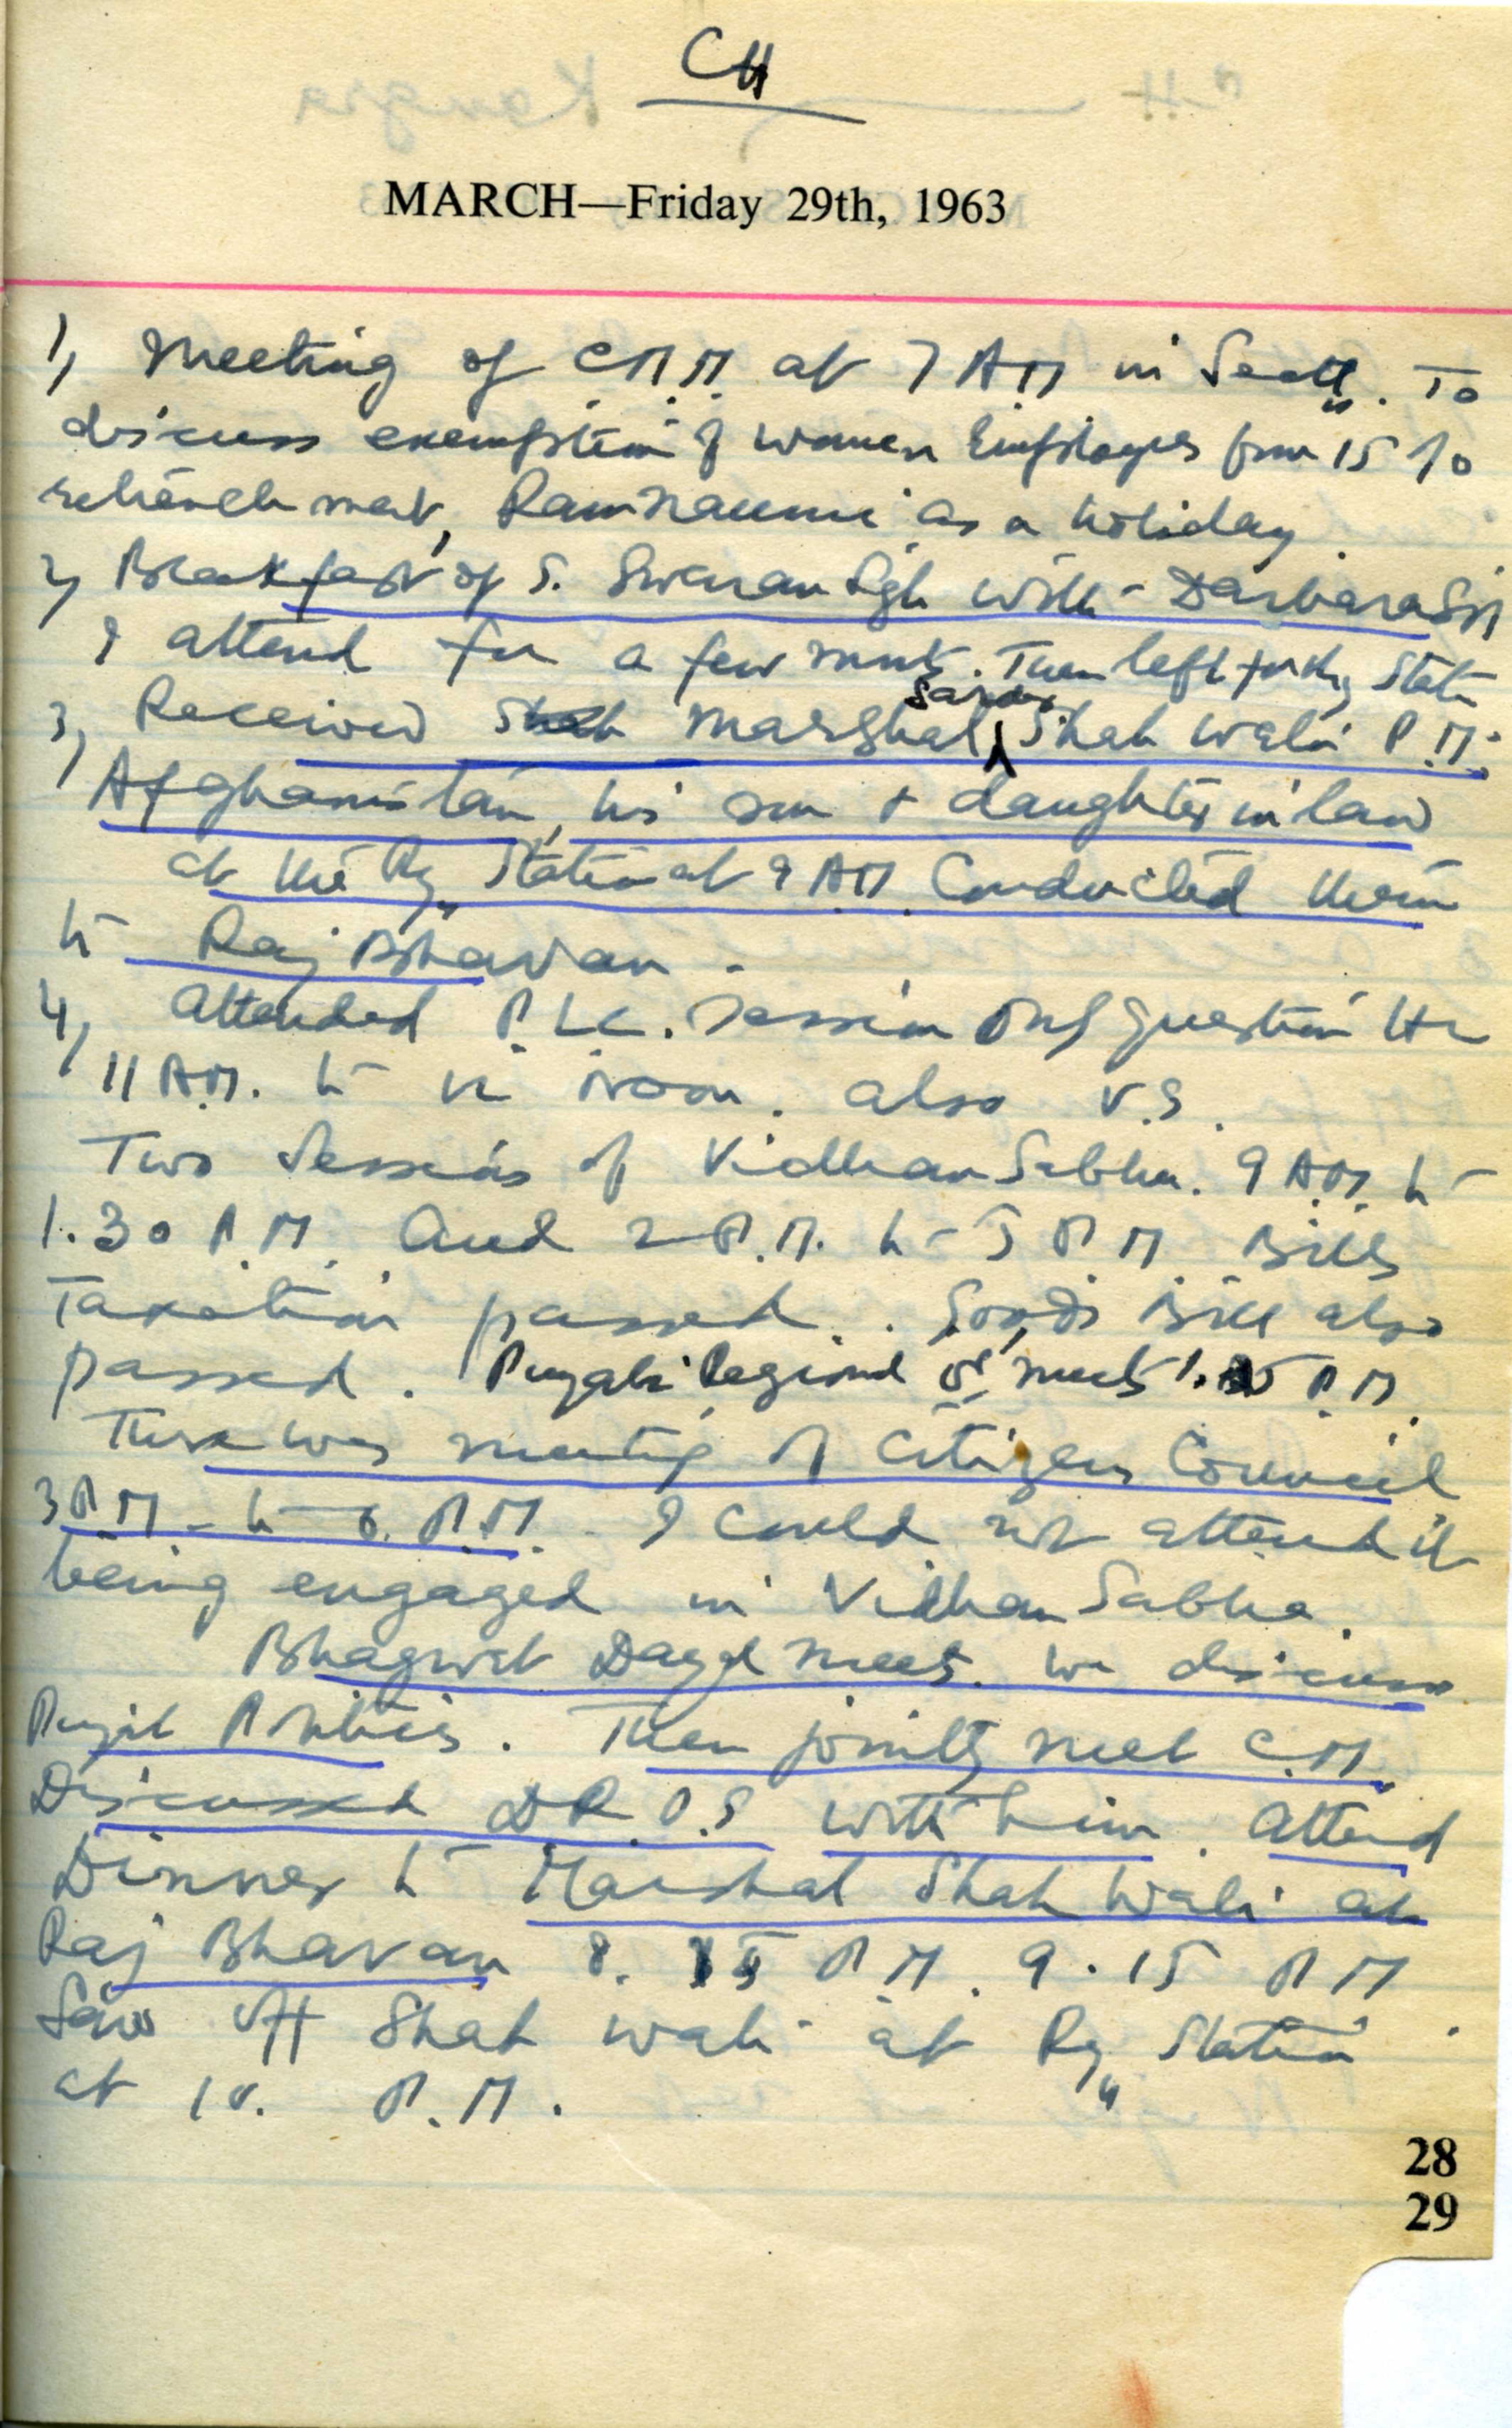 CH
MARCH—Friday 29th, 1963
1) Meeting of C.M.M. at 7 A.M in Sectt. To
discuss exemption of women Employes from 15 %
retrenchment, Ramnaumi as a holiday.
2) Breakfast of S. Swaran Sgh with - Darbara
I attend for a few mnts. Then left for Rly Statn
Sardar
3) Received Shah Marshal Shah Wali P.M.
Afghanistan, his son + daughter in law
at the Ry Station at 9 A.M. Conducted them
to Raj Bhavan.
4) Attended P.L.C. session only question Hr
11 A.M. to 12 Noon. also V.S.
Two Sessions of Vidhan Sabha. 9 A.M. to
1.30 P.M. and 2 P.M. to 5 P.M Bills
Taxation passed. Goods Bill also
passed. Punjabi Regional meets P.M.
There was meeting of Citizens Council
3 P.M - to 6. P.M. I could not attend it
being engaged in Vidhan Sabha.
Bhagwat Dayal meets. we discuss
Punjab Politics. Then jointly meet C.M.
Discussed D.R.O.S with him. Attend
Dinner to Marshal Shah Wali at
Raj Bhavan 8. P.M. 9.15 P M
Saw off Shah Wali at Ry Station.
at 10. P.M.
28
29